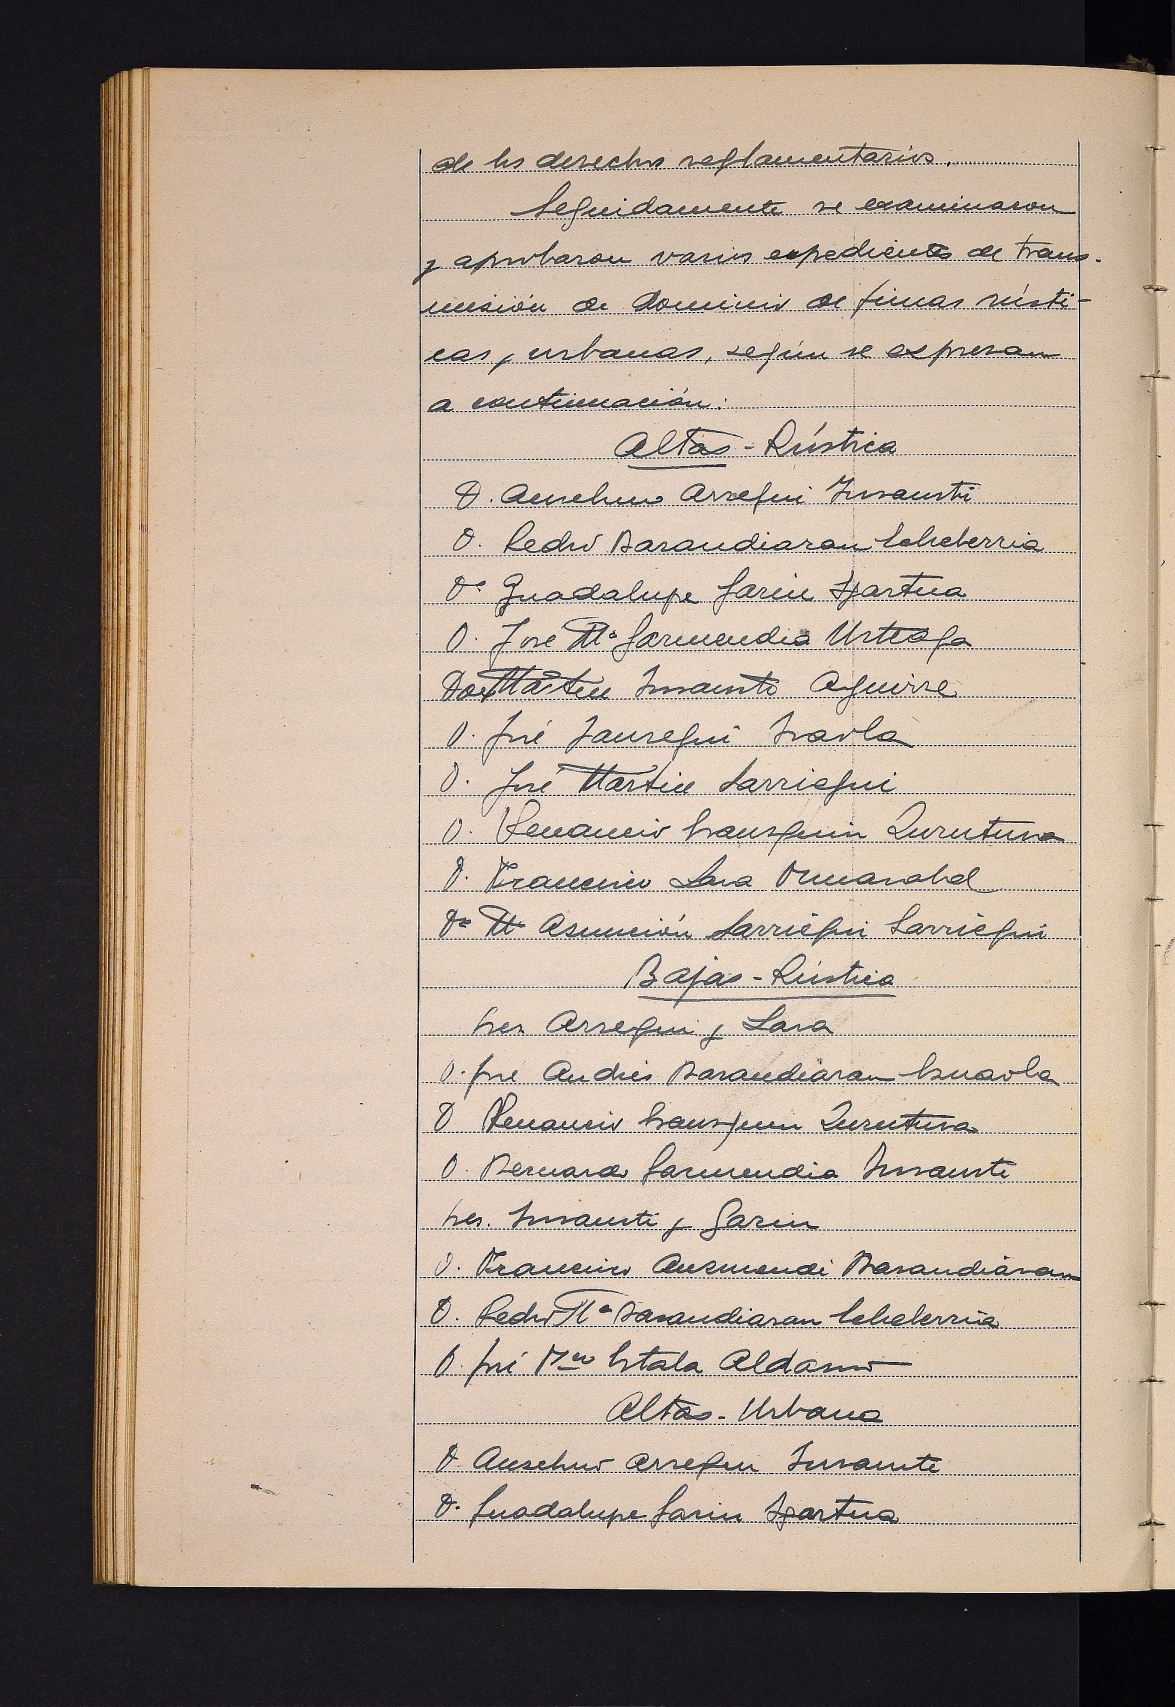 de los derechos reglamentarios.
Seguidamente se examinaron
y aprobaron varios expedientes de trans-
misión de dominio de fincas rústi-
cas y urbanas, según se expresan
a continuación:
Altas - Rústica
D. Anselmo Arregui Insausti
D. Pedro Barandiaran Echeberria
Dª Guadalupe Garin Igartua
D. José Mª Garmendia Urteaga
Martin Insausti Aguirre
D. José Jauregui Iraola
D. José Martin Larriegui
D. Venancio Iransguin Zurutuza
D. Francisco Lasa Ormazabal
Dª Mª Asunción Sarriegui Sarriegui
Bajas - Rústica
Sres. Arregui y Lasa
D. José Andrés Barandiaran
D Venancio Zurutuza
D. Bernardo Garmendia Insausti
Sres. Insausti y Garin
D. Francisco Auzmendi Barandiáran
D. Pedro Mª Barandiaran Echeberria
D. José Estala Aldasoro
Altas - Urbana
D. Anselmo Arregui Insausti
D. Guadalupe Garin Igartua